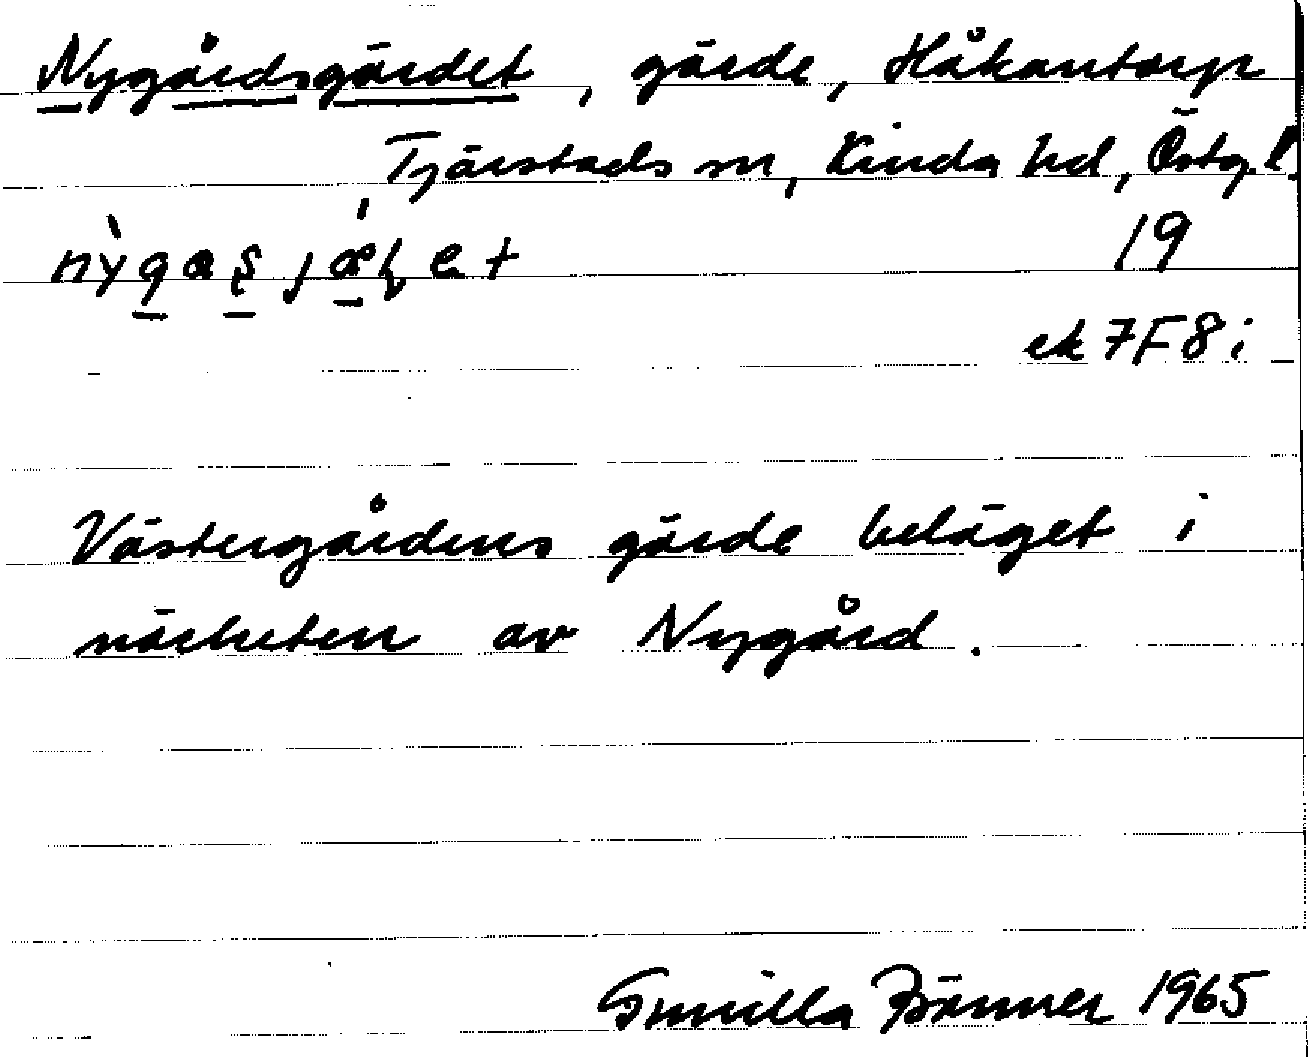 Nygårdsgärdet, gärde, Håkantorp
Tjärstads sn, Kinda hd, Östg.l.
19
ek 7F8i
Västergårdens gärde beläget i
närheten av Nygård.
Gunilla 1965